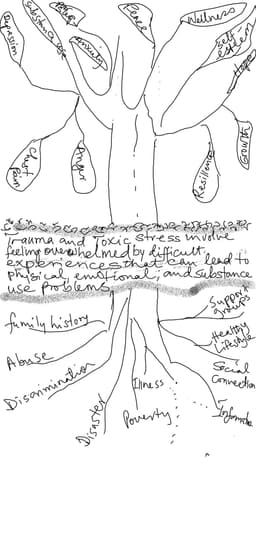 Depression
Substance use
Anxiety
Peace
Wellness
Self
esteem
Hope
Chest
Pain
Anger
Resilience
Growth
Trauma and Toxic stress involve
feeling overwhelmed by difficult
experiences that can lead to
physical, emotional, and substance
use problems
family history
Abuse
Discrimination
Disaster
Illness
Poverty
Support
groups
Healthy
Lifestyle
Social
Connection